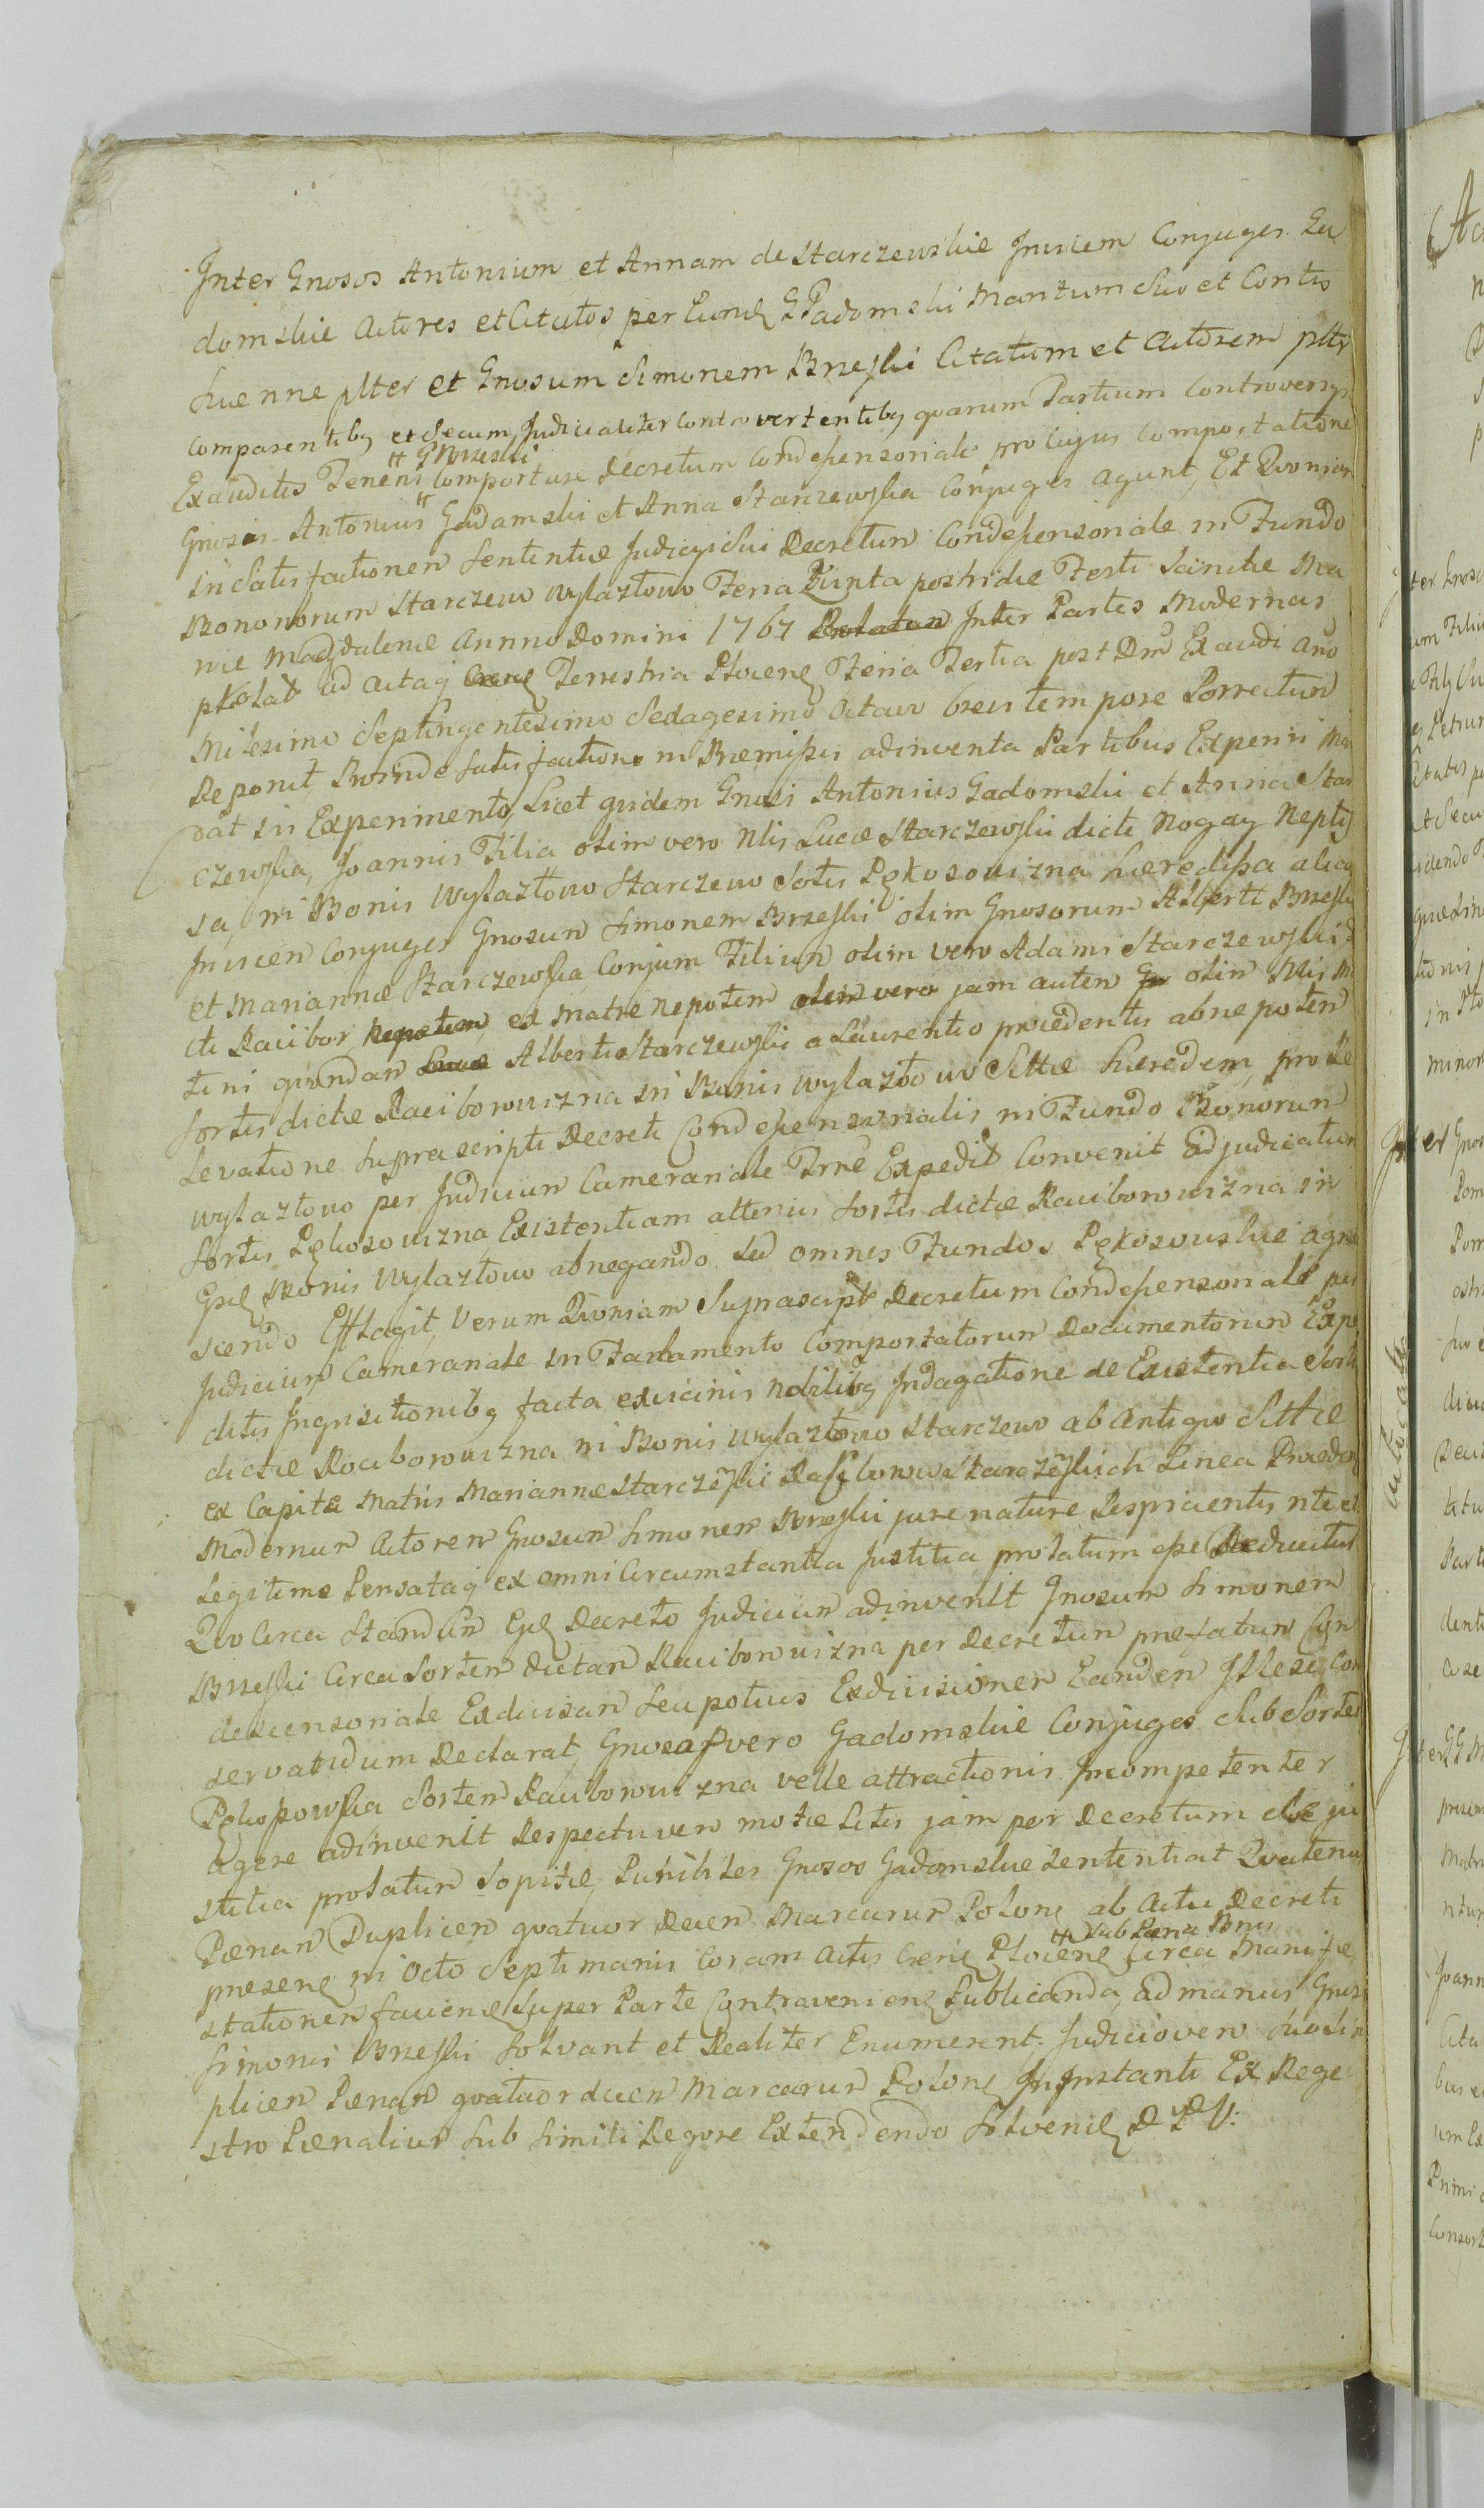 Inter Gnosos Antonium et Annam de Starczewskie Invicem Conjuges Ga
domskie Actores et Citatos per Eund G Gadomski Maritum Suo et Contis
Suæ nne plter et Gnosum Simonem Brzeski Citatum et Actorem plter
Comparentibg et Secum Judicialiter Controvertentibg quarum Partium Controversys
# G Brzeski
Exauditis Tenens Comportare Decretum Condescensoriale pro Cujus Comportatione
Gnosis Antonius # Gadamski et Anna Starczewska Conjuges agunt, Et Qvoniam
in Satisfactionem Sententiæ Judicysui Decretum Condescensoriale in Fundo
Bononorum Starczewo Wylaztowo Feria Quinta postridie Festi Sanctæ Ma
riæ Magdalenæ Annno Domini 1767 Prolatum Inter Partes Modernas
prolat ad Actaq Terrestria Plocens Feria Tertia post Dm Exaudi Ano
Milesimo Septingentesimo Sedagesimo Octavo brevi tempore Porrectum
Reponit Proinde Satisfactione in Præmissis adinventa Partibus Experiri Man
dat in Experimento Licet quidem Gnosi Antonius Gadomski et Anna Star
czewska, Joannis Filia olim vero Nlis Lucæ Starczewski dicti Nogay Nepti
sa, in Bonis Wylaztowo Starczewo Sortis Pękosowizna hæredissa aliaq
Invicem Conjuges Gnosum Simonem Brzeski olim Gnosorum Alberti Brzeski
et Mariannæ Starczewska Conjum Filium olim vero Adami Starczewski di
cti Racibor Nepotem, ex Matre Nepotem olim vero jam autem olim Nlis M
tini quondam Lucæ Alberti Starczewski a Laurentio procedentis abnepotem
Sortis dictæ Raciborowizna in Bonis Wylaztowo Sittæ hæredem, pro Re
levatione Suprascripti Decreti Condescensorialis in Fundo Bonorum
Wylaztowo per Judicium Camerariale Trne Expedit Convenit adjudicatum
Sortis Pękosowizna, Existentiam alterius Sortis dictæ Raciborowizna in
Bonis Wylaztowo abnegando sed omnes Fundos Pękosowskie agno
scendo Efflagit, Verum Quoniam Suprascript Decretum Condescensoriale per
Judicium Camerariale in Fundamento Comportatorum Documentorum Expe
ditis Inquisitionibg facta ex vicinis Nobilibg Indagatione de Existentia Sortis
dictæ Raciborowizna in Bonis Wylaztowo Starczewo ab Antiquo Sittæ
ex Capite Matris Mariannæ Starczeski Raciborow Starczeskich Linea Præde
Modernum Actorem Gnosum Simonem Brzeski jure naturæ Respicientis nte et
Legitime Pensataq ex omni Circumstantia Justitia prolatum esse Deducitur
Qvo Circa Standum Decreto Judicium adinvenit Gnosum Simonem
Brzeski Circa Sortem dictam Raciborowizna per Decretum præfatum Con
descensoriale Exdivisam Seu potius Exdivisionem Eandem Illese Con
servandum Declarat, Gnosos vero Gadomskie Conjuges Sub Sorte
Pękopowska Sortem Raciborowizna velle attractionis Incompetenter
agere adinvenit Respectu vero motæ Litis jam per Decretum de ju
stitia prolatum Sopitæ, Punibiles Gnosos Gadomskie Sententiat Quatenus
Pænam Duplicem qvatuor Decem Marcarum Polonc ab Actu Decreti
# Sub Pæna Bnis
presens in Octo Septimanis Coram Actis Plocens # Circa Manife
stationem faciens Super Parte Contraveniens Publicanda, ad manus Gnosi
Simonis Brzeski Solvant et Realiter Enumerent. Judiciovero Sivesim
plicem Pænam qvatuordecem Marcarum Polonc In Instanti Ex Rege
stro Pænalium Sub Simili Regore Extendendo Solvenc D P V: